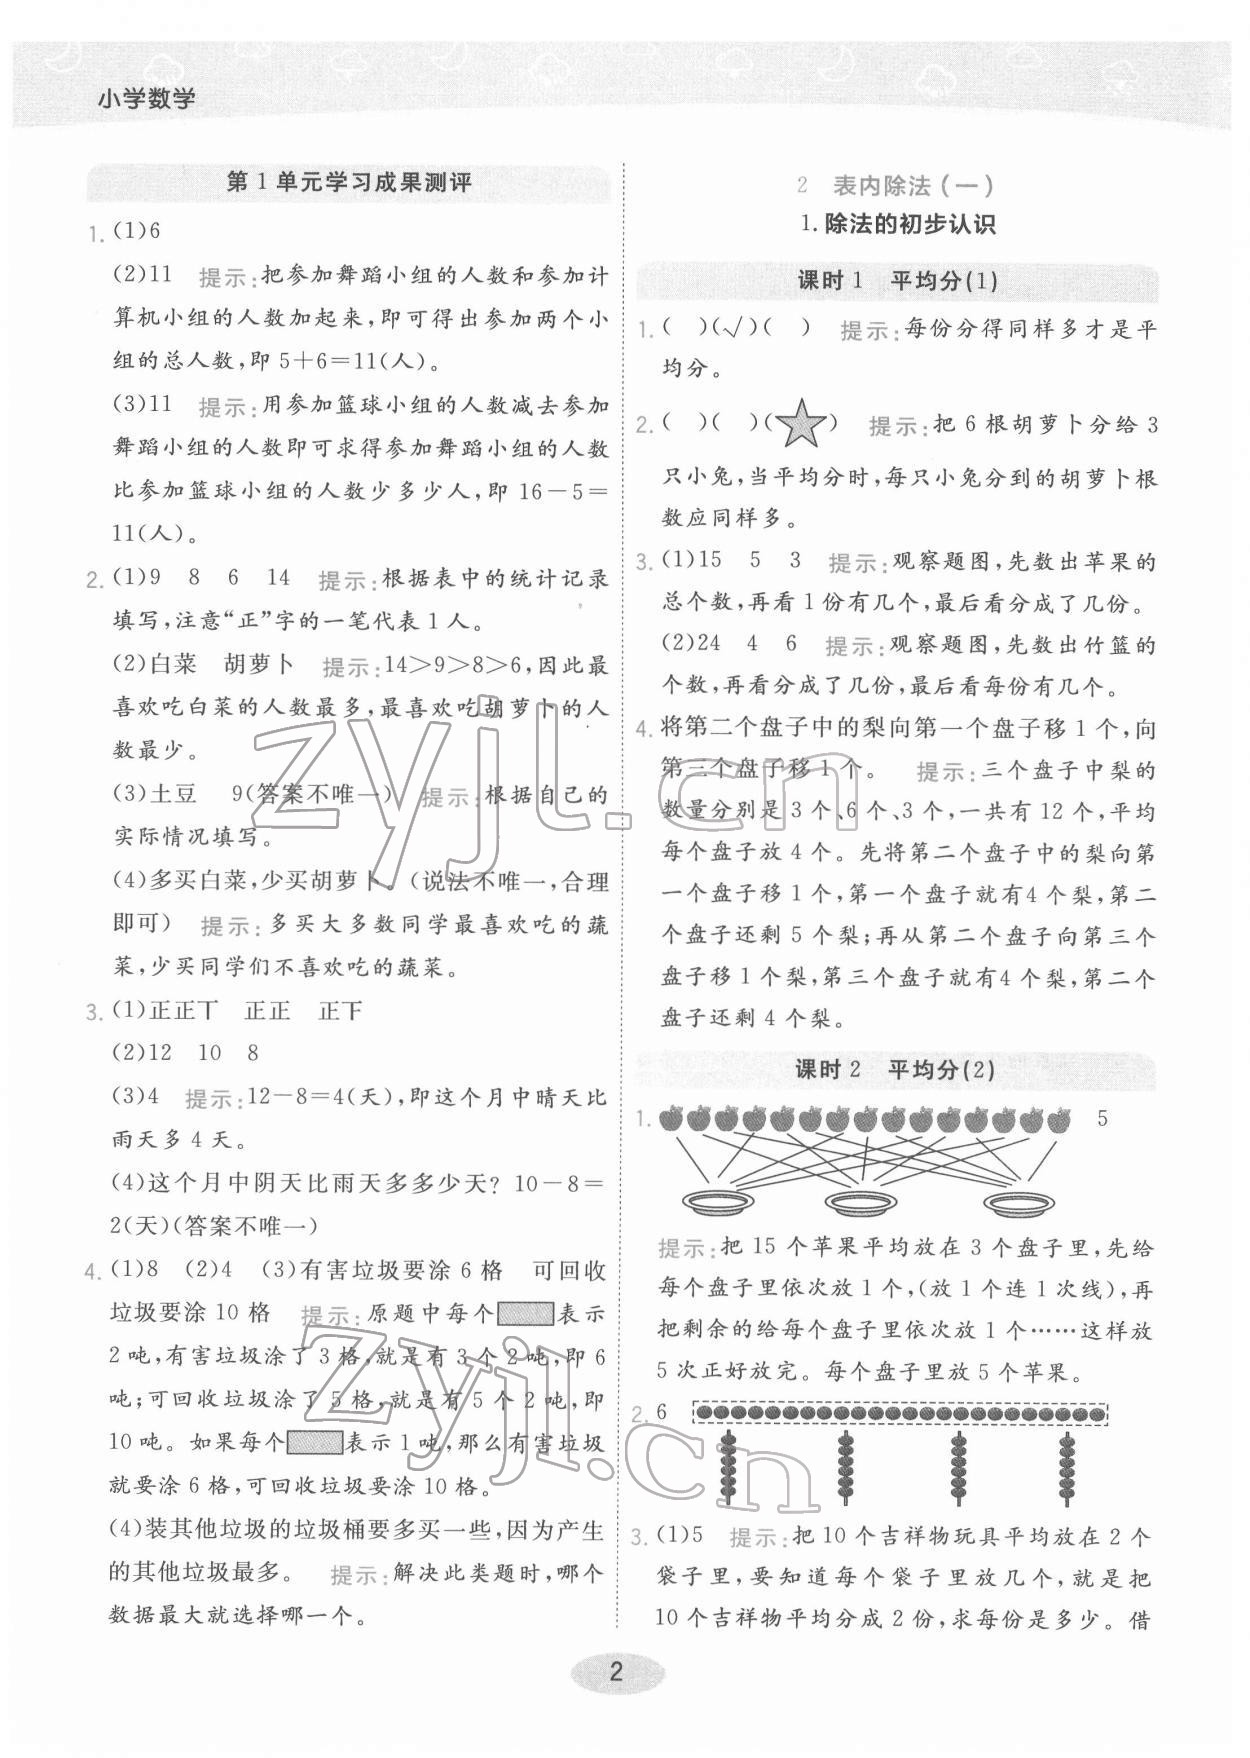 小学数学
第1单元学习成果测评
1. (1)6
(2)11 提示:把参加舞蹈小组的人数和参加计
算机小组的人数加起来,即可得出参加两个小
组的总人数,即5+6=11(人)。
(3)11 提示:用参加篮球小组的人数减去参加
舞蹈小组的人数即可求得参加舞蹈小组的人数
比参加篮球小组的人数少多少人,即16-5=
11(人)。
2. (1)9 8 6 14 提示:根据表中的统计记录
填写,注意“正”字的一笔代表1人。
(2)白菜 胡萝卜 提示:14>9>8>6,因此最
喜欢吃白菜的人数最多,最喜欢吃胡萝卜的人
数最少。
(3)土豆 9(答案不唯一) 提示:根据自己的
实际情况填写。
(4)多买白菜,少买胡萝卜。(说法不唯一,合理
即可) 提示:多买大多数同学最喜欢吃的蔬
菜,少买同学们不喜欢吃的蔬菜。
3. (1)正正丅 正正 正下
(2)12 10 8
(3)4 提示:12-8=4(天),即这个月中晴天比
雨天多4天。
(4)这个月中阴天比雨天多多少天? 10-8=
2(天)(答案不唯一)
4. (1)8 (2)4 (3)有害垃圾要涂6格 可回收
垃圾要涂10格 提示:原题中每个 表示
2吨,有害垃圾涂了3格,就是有3个2吨,即6
吨;可回收垃圾涂了5格,就是有5个2吨,即
10吨。如果每个 表示1吨,那么有害垃圾
就要涂6格,可回收垃圾要涂10格。
(4)装其他垃圾的垃圾桶要多买一些,因为产生
的其他垃圾最多。 提示:解决此类题时,哪个
数据最大就选择哪一个。
2 表内除法(一)
1.除法的初步认识
课时1 平均分(1)
1. ( )(√)( ) 提示:每份分得同样多才是平
均分。
2. ( )( )( ) 提示:把6根胡萝卜分给3
只小兔,当平均分时,每只小兔分到的胡萝卜根
数应同样多。
3. (1)15 5 3 提示:观察题图,先数出苹果的
总个数,再看1份有几个,最后看分成了几份。
(2)24 4 6 提示:观察题图,先数出竹篮的
个数,再看分成了几份,最后看每份有几个。
4. 将第二个盘子中的梨向第一个盘子移1个,向
第三个盘子移1个。 提示:三个盘子中梨的
数量分别是3个、6个、3个,一共有12个,平均
每个盘子放4个。先将第二个盘子中的梨向第
一个盘子移1个,第一个盘子就有4个梨,第二
个盘子还剩5个梨;再从第二个盘子向第三个
盘子移1个梨,第三个盘子就有4个梨,第二个
盘子还剩4个梨。
课时2 平均分(2)
1. 5
提示:把15个苹果平均放在3个盘子里,先给
每个盘子里依次放1个,(放1个连1次线),再
把剩余的给每个盘子里依次放1个……这样放
5次正好放完。每个盘子里放5个苹果。
2. 6
3. (1)5 提示:把10个吉祥物玩具平均放在2个
袋子里,要知道每个袋子里放几个,就是把
10个吉祥物平均分成2份,求每份是多少。借
2
zyjl.cn
zyjl.cn